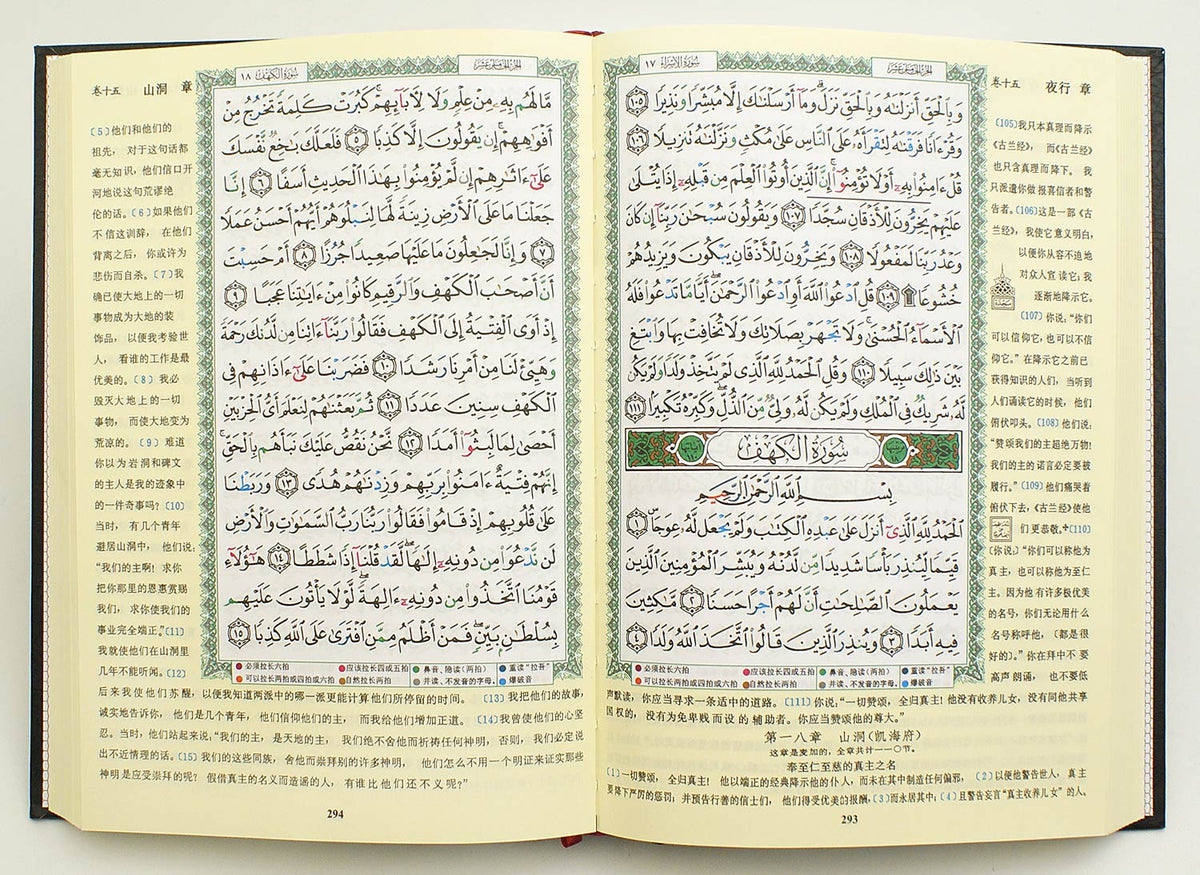 الجزء الخامس عشر
سورة الإسراء ١٧
وَبِالْحَقِّ أَنزَلْنَٰهُ وَبِالْحَقِّ نَزَلَ ۗ وَمَآ أَرْسَلْنَٰكَ إِلَّا مُبَشِّرًا وَنَذِيرًا ١٠٥
وَقُرْءَانًا فَرَقْنَٰهُ لِتَقْرَأَهُۥ عَلَى ٱلنَّاسِ عَلَىٰ مُكْثٍ وَنَزَّلْنَٰهُ تَنزِيلًا ١٠٦
قُلْ ءَامِنُوا۟ بِهِۦٓ أَوْ لَا تُؤْمِنُوٓا۟ ۚ إِنَّ ٱلَّذِينَ أُوتُوا۟ ٱلْعِلْمَ مِن قَبْلِهِۦٓ إِذَا يُتْلَىٰ
عَلَيْهِمْ يَخِرُّونَ لِلْأَذْقَانِ سُجَّدًا ١٠٧ وَيَقُولُونَ سُبْحَٰنَ رَبِّنَآ إِن كَانَ
وَعْدُ رَبِّنَا لَمَفْعُولًا ١٠٨ وَيَخِرُّونَ لِلْأَذْقَانِ يَبْكُونَ وَيَزِيدُهُمْ
خُشُوعًا ۩ ١٠٩ قُلِ ٱدْعُوا۟ ٱللَّهَ أَوِ ٱدْعُوا۟ ٱلرَّحْمَٰنَ ۖ أَيًّا مَّا تَدْعُوا۟ فَلَهُ
ٱلْأَسْمَآءُ ٱلْحُسْنَىٰ ۚ وَلَا تَجْهَرْ بِصَلَاتِكَ وَلَا تُخَافِتْ بِهَا وَٱبْتَغِ
بَيْنَ ذَٰلِكَ سَبِيلًا ١١٠ وَقُلِ ٱلْحَمْدُ لِلَّهِ ٱلَّذِى لَمْ يَتَّخِذْ وَلَدًا وَلَمْ يَكُن
لَّهُۥ شَرِيكٌ فِى ٱلْمُلْكِ وَلَمْ يَكُن لَّهُۥ وَلِىٌّ مِّنَ ٱلذُّلِّ ۖ وَكَبِّرْهُ تَكْبِيرًا ١١١
سُورَةُ الكَهْفِ
بِسْمِ ٱللَّهِ ٱلرَّحْمَٰنِ ٱلرَّحِيمِ
ٱلْحَمْدُ لِلَّهِ ٱلَّذِىٓ أَنزَلَ عَلَىٰ عَبْدِهِ ٱلْكِتَٰبَ وَلَمْ يَجْعَل لَّهُۥ عِوَجَا ۜ ١
قَيِّمًا لِّيُنذِرَ بَأْسًا شَدِيدًا مِّن لَّدُنْهُ وَيُبَشِّرَ ٱلْمُؤْمِنِينَ ٱلَّذِينَ
يَعْمَلُونَ ٱلصَّٰلِحَٰتِ أَنَّ لَهُمْ أَجْرًا حَسَنًا ٢ مَّٰكِثِينَ
فِيهِ أَبَدًا ٣ وَيُنذِرَ ٱلَّذِينَ قَالُوا۟ ٱتَّخَذَ ٱللَّهُ وَلَدًا ٤
必须拉长六拍 应该拉长四或五拍 鼻音、隐读(两拍) 重读"拉吾"
可以拉长两拍或四拍或六拍 自然拉长两拍 并读、不发音的字母。 爆破音
卷十五 夜行 章
(105)我只本真理而降示
《古兰经》, 而《古兰经》
也只含真理而降下。 我
只派遣你做 报喜信者和警
告者。(106)这是一部《古
兰经》,我使它意义明白,
以便你从容不迫地
对众人宣 读它;我
逐渐地降示它。
(107)你说:"你们
可以信仰它,也可以不信
仰它。"在降示它之前已
获得知识的人们, 当听到
人们诵读它的时候, 他们
俯伏叩头。(108)他们说:
"赞颂我们的主超绝万物!
我们的主的 诺言必定要被
履行。"(109)他们痛哭着
俯伏下去,《古兰经》使他
们更恭敬。※(110)
(你说:)"你们可以称他为
真主,也可以称他为至仁
主。因为他 有许多极优美
的名号,你们无论用什么
名号称呼他,(都是很
好的)。"你在拜中不 要
高声 朗诵, 也不要低
声默读,你应当寻求一条适中的道路。(111)你说:"一切赞颂,全归真主!他没有收养儿女,没有同他共享
国权的,没有为免卑贱而设的辅助者。你应当赞颂他的尊大。"
第一八章 山洞(凯海府)
这章是麦加的,全章共计一一〇节。
奉至仁至慈的真主之名
(1)一切赞颂, 全归真主! 他以端正的经典降示他的仆人,而未在其中制造任何偏邪, (2)以便他警告世人, 真主
要降下严厉的惩罚;并预告行善的信士们, 他们得受优美的报酬,(3)而永居其中;(4)且警告妄言"真主收养儿女"的人,
293
الجزء الخامس عشر
سورة الكهف ١٨
مَّا لَهُم بِهِۦ مِنْ عِلْمٍ وَلَا لِءَابَآئِهِمْ ۚ كَبُرَتْ كَلِمَةً تَخْرُجُ مِنْ
أَفْوَٰهِهِمْ ۚ إِن يَقُولُونَ إِلَّا كَذِبًا ٥ فَلَعَلَّكَ بَٰخِعٌ نَّفْسَكَ
عَلَىٰٓ ءَاثَٰرِهِمْ إِن لَّمْ يُؤْمِنُوا۟ بِهَٰذَا ٱلْحَدِيثِ أَسَفًا ٦ إِنَّا
جَعَلْنَا مَا عَلَى ٱلْأَرْضِ زِينَةً لَّهَا لِنَبْلُوَهُمْ أَيُّهُمْ أَحْسَنُ عَمَلًا
٧ وَإِنَّا لَجَٰعِلُونَ مَا عَلَيْهَا صَعِيدًا جُرُزًا ٨ أَمْ حَسِبْتَ
أَنَّ أَصْحَٰبَ ٱلْكَهْفِ وَٱلرَّقِيمِ كَانُوا۟ مِنْ ءَايَٰتِنَا عَجَبًا ٩
إِذْ أَوَى ٱلْفِتْيَةُ إِلَى ٱلْكَهْفِ فَقَالُوا۟ رَبَّنَآ ءَاتِنَا مِن لَّدُنكَ رَحْمَةً
وَهَيِّئْ لَنَا مِنْ أَمْرِنَا رَشَدًا ١٠ فَضَرَبْنَا عَلَىٰٓ ءَاذَانِهِمْ فِى
ٱلْكَهْفِ سِنِينَ عَدَدًا ١١ ثُمَّ بَعَثْنَٰهُمْ لِنَعْلَمَ أَىُّ ٱلْحِزْبَيْنِ
أَحْصَىٰ لِمَا لَبِثُوٓا۟ أَمَدًا ١٢ نَّحْنُ نَقُصُّ عَلَيْكَ نَبَأَهُم بِٱلْحَقِّ ۚ
إِنَّهُمْ فِتْيَةٌ ءَامَنُوا۟ بِرَبِّهِمْ وَزِدْنَٰهُمْ هُدًى ١٣ وَرَبَطْنَا
عَلَىٰ قُلُوبِهِمْ إِذْ قَامُوا۟ فَقَالُوا۟ رَبُّنَا رَبُّ ٱلسَّمَٰوَٰتِ وَٱلْأَرْضِ
لَن نَّدْعُوَا۟ مِن دُونِهِۦٓ إِلَٰهًا ۖ لَّقَدْ قُلْنَآ إِذًا شَطَطًا ١٤ هَٰٓؤُلَآءِ
قَوْمُنَا ٱتَّخَذُوا۟ مِن دُونِهِۦٓ ءَالِهَةً ۖ لَّوْلَا يَأْتُونَ عَلَيْهِم
بِسُلْطَٰنٍۭ بَيِّنٍ ۖ فَمَنْ أَظْلَمُ مِمَّنِ ٱفْتَرَىٰ عَلَى ٱللَّهِ كَذِبًا ١٥
必须拉长六拍 应该拉长四或五拍 鼻音、隐读(两拍) 重读"拉吾"
可以拉长两拍或四拍或六拍 自然拉长两拍 并读、不发音的字母。 爆破音
卷十五 山洞 章
(5)他们和他们的
祖先, 对于这句话都
毫无知识,他们信口开
河地说这句荒谬绝
伦的话。(6)如果他们
不信这训辞, 在他们
背离之后, 你或许为
悲伤而自杀。(7)我
确已使大地上的一切
事物成为大地的装
饰品, 以便我考验世
人, 看谁的工作是最
优美的。(8)我必
毁灭大地上的一切
事物, 而使大地变为
荒凉的。(9)难道
你以为岩洞和碑文
的主人是我的迹象中
的一件奇事吗?(10)
当时, 有几个青年
避居山洞中, 他们说:
"我们的主啊! 求你
把你那里的恩惠赏赐
我们, 求你使我们的
事业完全端正。"(11)
我就使他们在山洞里
几年不能听闻。(12)
后来我使他们苏醒,以便我知道两派中的哪一派更能计算他们所停留的时间。 (13)我把他们的故事,
诚实地告诉你, 他们是几个青年, 他们信仰他们的主, 而我给他们增加正道。(14)我曾使他们的心坚
忍。当时,他们站起来说,"我们的主,是天地的主, 我们绝不舍他而祈祷任何神明,否则,我们必定说
出不近情理的话。(15)我们的这些同族, 舍他而崇拜别的许多神明, 他们怎么不用一个明证来证实那些
神明是应受崇拜的呢? 假借真主的名义而造谣的人, 有谁比他们还不义呢?"
294